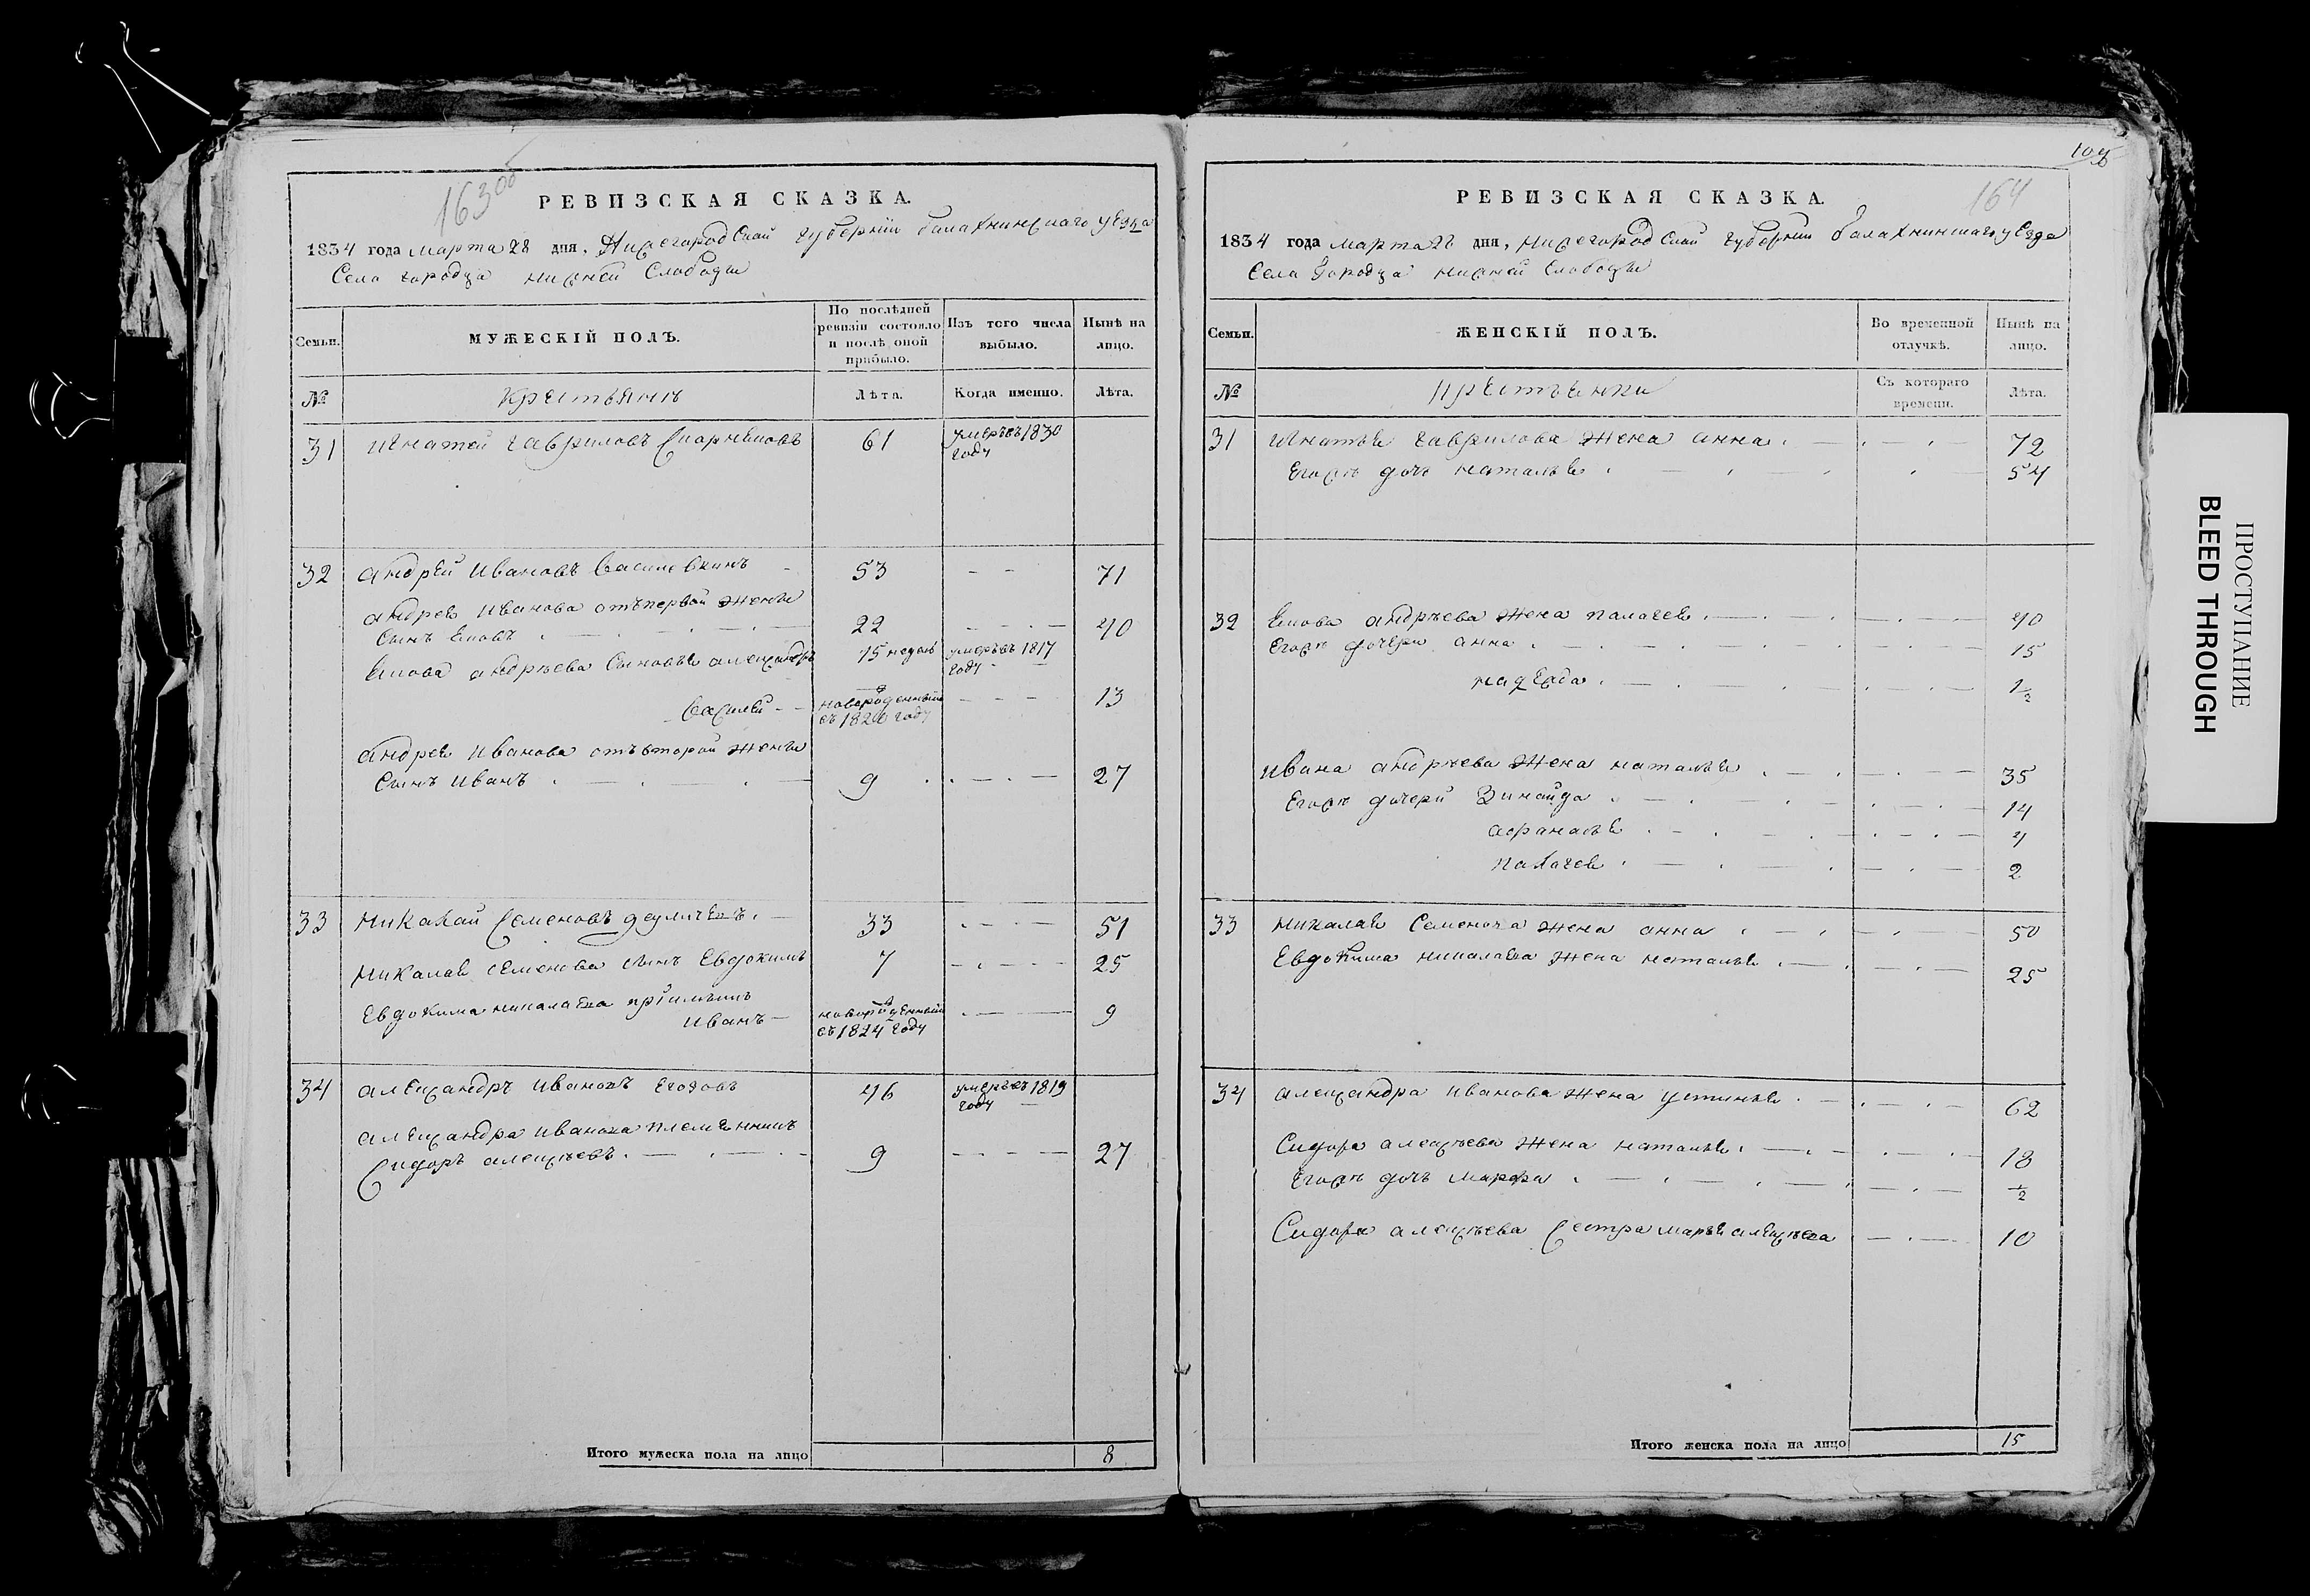 163
РЕВИЗСКАЯ СКАЗКА.
1834 года марта 28 дня, Нижегородской губернии балахнинскаго уезда
Села городца нижней Слободы
Семьи.
МУЖЕСКІЙ ПОЛЪ.
По послѣдней ревизіи состояло и послѣ оной прибыло.
Изъ того числа выбыло.
Нынѣ на лицо.
№
крестьянъ
Лѣта.
Когда именно.
Лѣта.
31 игнатей гавриловъ 61 умеръ въ 1830
году
32 андрей ивановъ василевкинъ 53 71
андрея иванова отъ первой жены
сынъ иовъ 22 40
андрѣева сыновья александръ 15 недель умеръ въ 1817
году
василей новорожденный 13
въ 1820 году
андрея иванова отъ второй жены
сынъ иванъ 9 27
33 николай семеновъ 33 51
николая семенова сынъ евдокимъ 7 25
евдокима николаева пріимышъ
иванъ новорожденный 9
въ 1824 году
34 александръ ивановъ 46 умеръ въ 1819
году
александра иванова племянникъ
сидоръ алексѣевъ 9 27
Итого мужеска пола на лицо 8
164
РЕВИЗСКАЯ СКАЗКА.
1834 года марта 28 дня, нижегородской губернии балахнинскаго уезда
села городца нижней слободы
Семьи.
ЖЕНСКІЙ ПОЛЪ.
Во временной отлучкѣ.
Нынѣ на лицо.
№
крестьянки
Съ котораго времени.
Лѣта.
31 игнатья гаврилова жена анна 72
егожъ дочь наталья 54
32 андрѣева жена палагея 40
егожъ дочери анна 15
надежда 1½
ивана андрѣева жена наталья 35
егожъ дочери зинаида 14
афанасья 4
палагея 2
33 николая семенова жена анна 50
евдокима николаева жена наталья 25
34 александра иванова жена устинья 62
сидора алексѣева жена наталья 18
егожъ дочь марфа ½
сидора алексѣева сестра марья алексѣева 10
Итого женска пола на лицо 15
ПРОСТУПАНИЕ
BLEED THROUGH